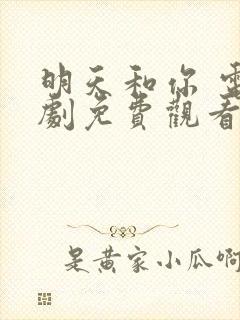 明天和你 電
劇免費觀看
是黃家小瓜啊